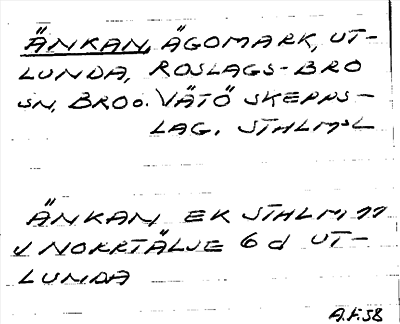 ÄNKAN, ÄGOMARK, UT-
LUNDA, ROSLAGS-BRO
SN, BRO o. VÄTÖ SKEPPS-
LAG. STHLMSL
ÄNKAN EK STHLM 11
V NORRTÄLJE 6 d UT-
LUNDA
A.F. 58